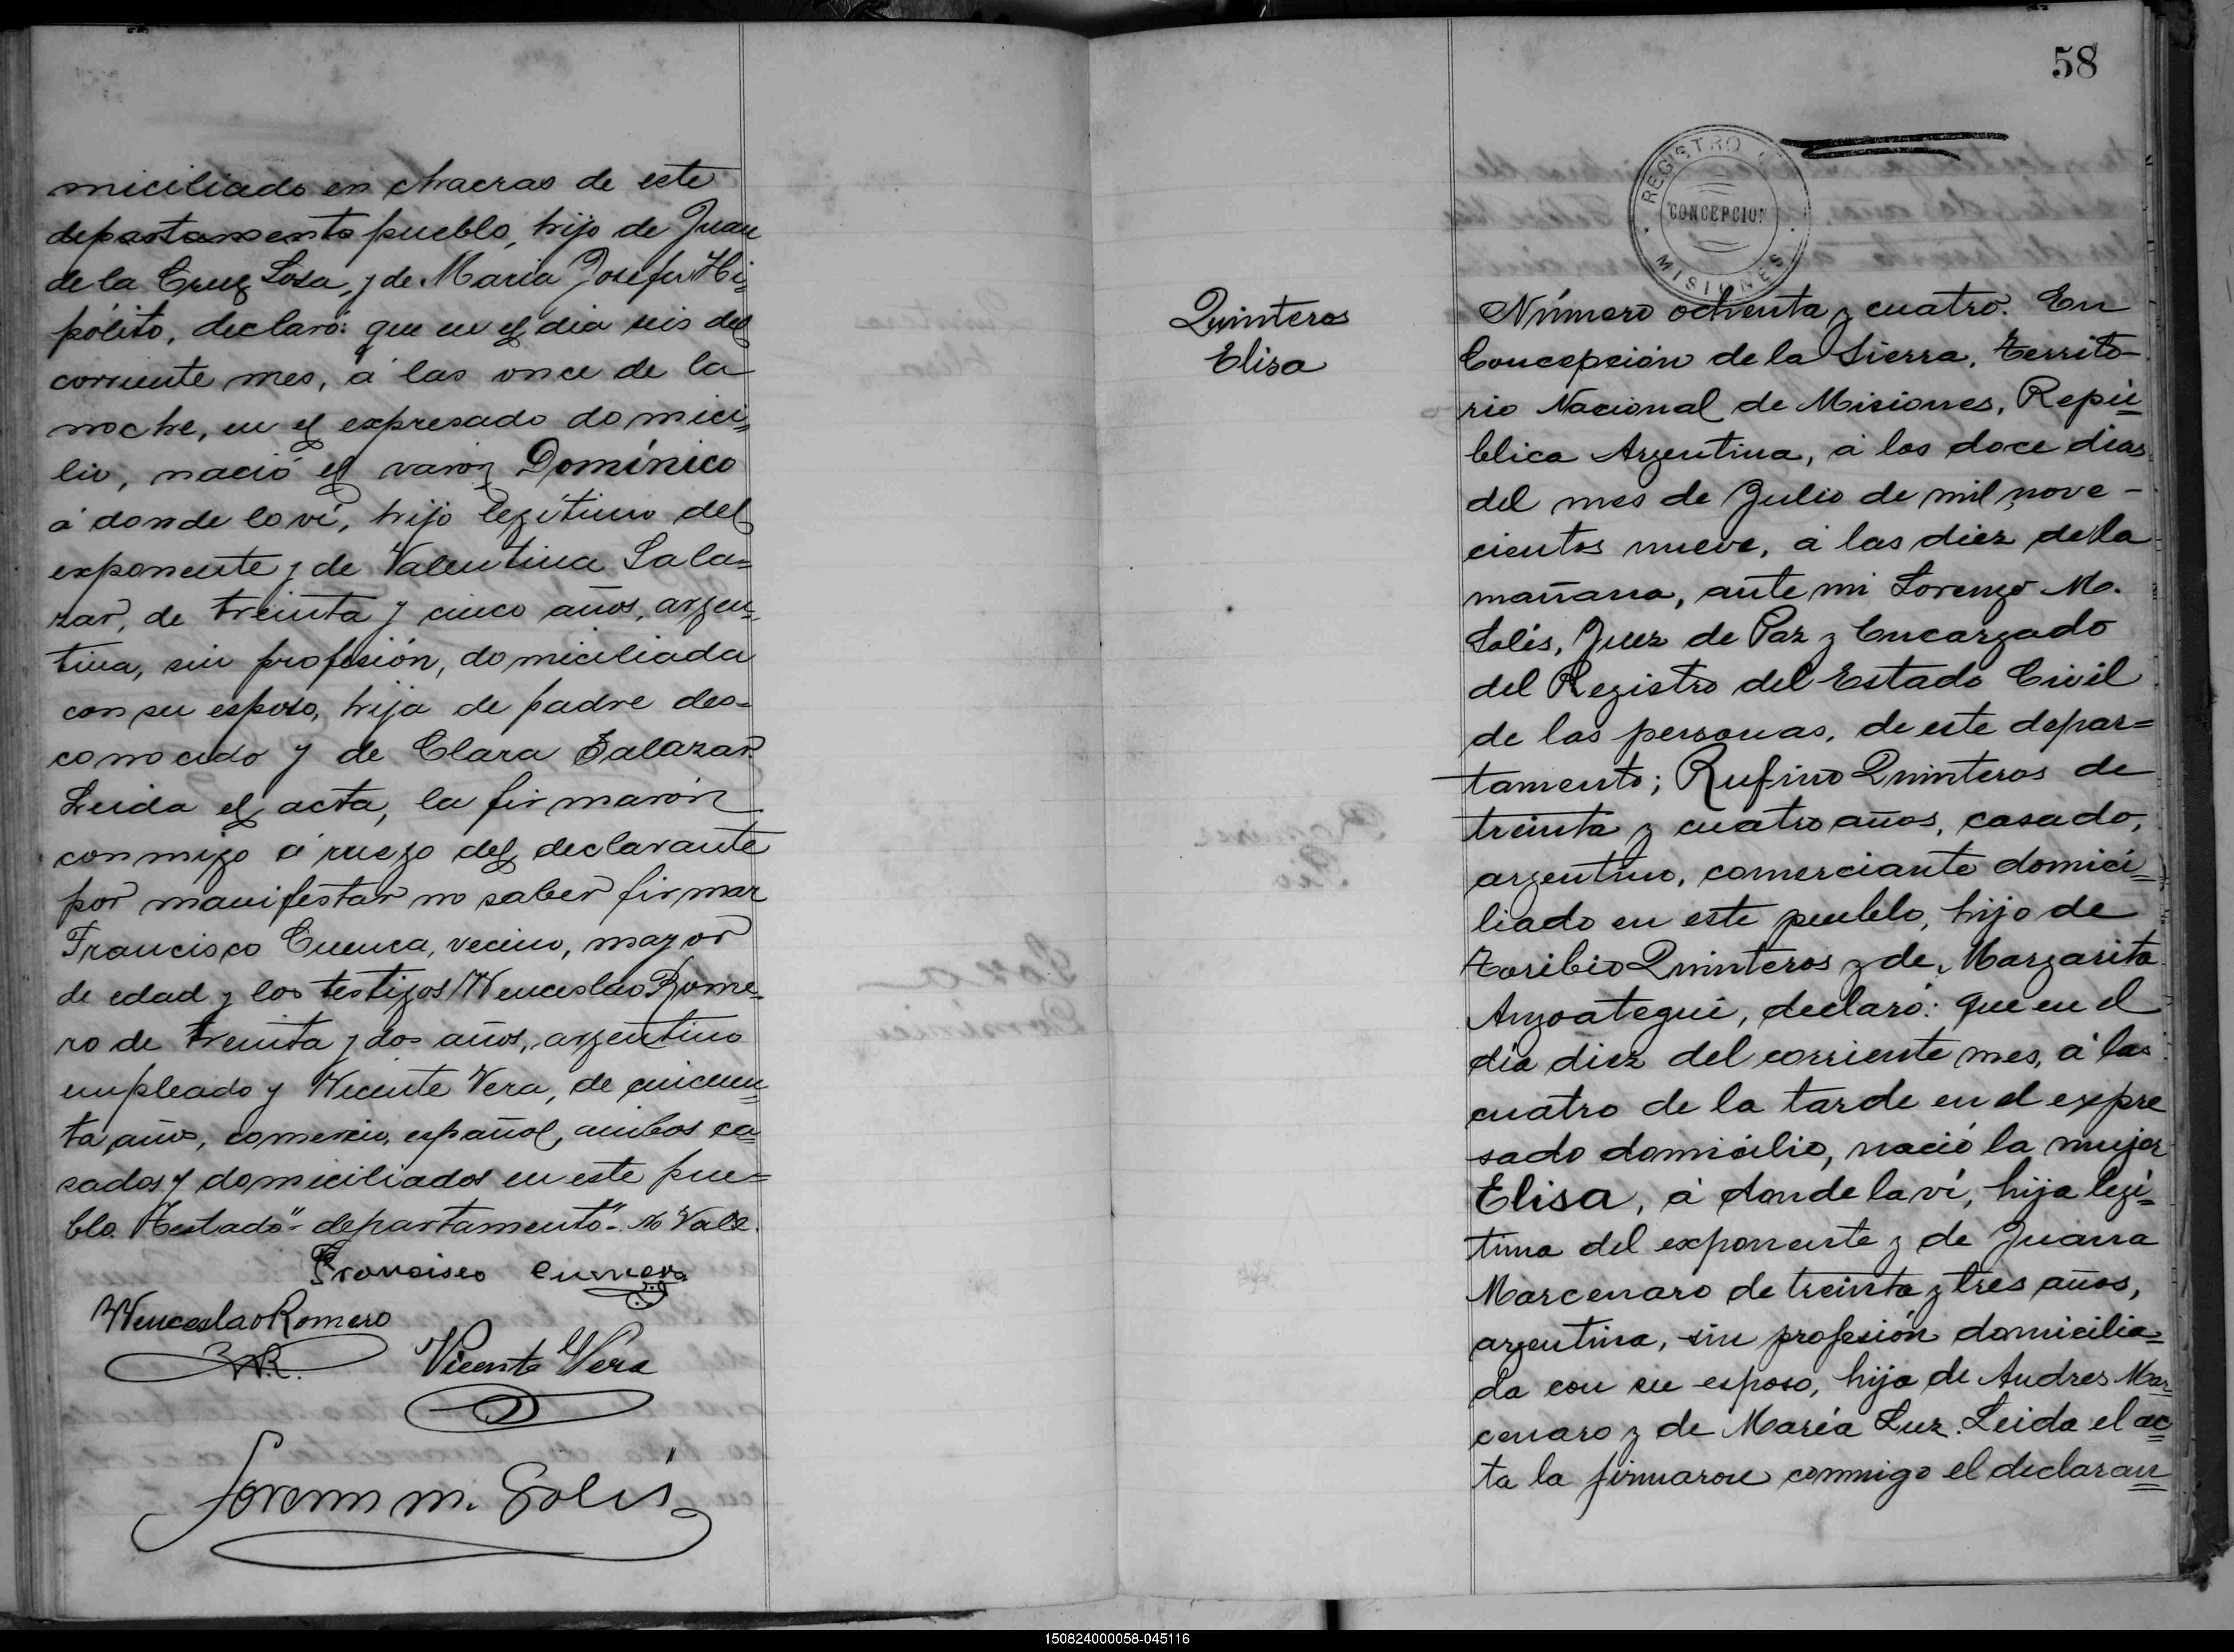 miciliado en chacras de este
departamento pueblo, hijo de Juan
de la Cruz Sosa, y de Maria Josefa Hi=
pólito, declaró: que en el dia seis del
corriente mes, á las once de la
noche, en el expresado domici=
lio, nació el varon Domínico
á donde lo ví, hijo legítimo del
exponente y de Valentina Sala=
zar, de treinta y cinco años, argen=
tina, sin profesión, domiciliada
con su esposo, hija de padre des=
conocido y de Clara Salazar.
Leida el acta, la firmarón
conmigo á ruego del declarante
por manifestar no saber firmar
Francisco Cuenca, vecino, mayor
de edad y los testigos Wenceslao Rome=
ro de treinta y dos años, argentino
empleado y Vicente Vera, de cincuen=
ta años, comercio, español, ambos ca=
sados y domiciliados en este pue=
blo. Testado "departamento" No Vale.
Francisco Cuenca
Wenceslao Romero
W.R.
Vicente Vera
Lorenzo M. Solís
58
REGISTRO
CONCEPCION
MISIONES
Quinteros
Elisa
Número ochenta y cuatro. En
Concepción de la Sierra, Territo-
rio Nacional de Misiones, Repú=
blica Argentina, á los doce dias
del mes de Julio de mil nove-
cientos nueve, á las diez de la
mañana, ante mi Lorenzo M.
Solís, Juez de Paz y Encargado
del Registro del Estado Civil
de las personas, de este depar=
tamento; Rufino Quinteros de
treinta y cuatro años, casado,
argentino, comerciante domici=
liado en este pueblo, hijo de
Toribio Quinteros y de Margarita
Anzoategui, declaró: que en el
día diez del corriente mes, á las
cuatro de la tarde en el expre
sado domicilio, nació la mujer
Elisa, á donde la ví, hija legí=
tima del exponente y de Juana
Marcenaro de treinta y tres años,
argentina, sin profesión domicilia=
da con su esposo, hija de Andres Mar=
cenaro y de María Luz. Leida el ac=
ta la firmaron conmigo el declaran=
150824000058-045116